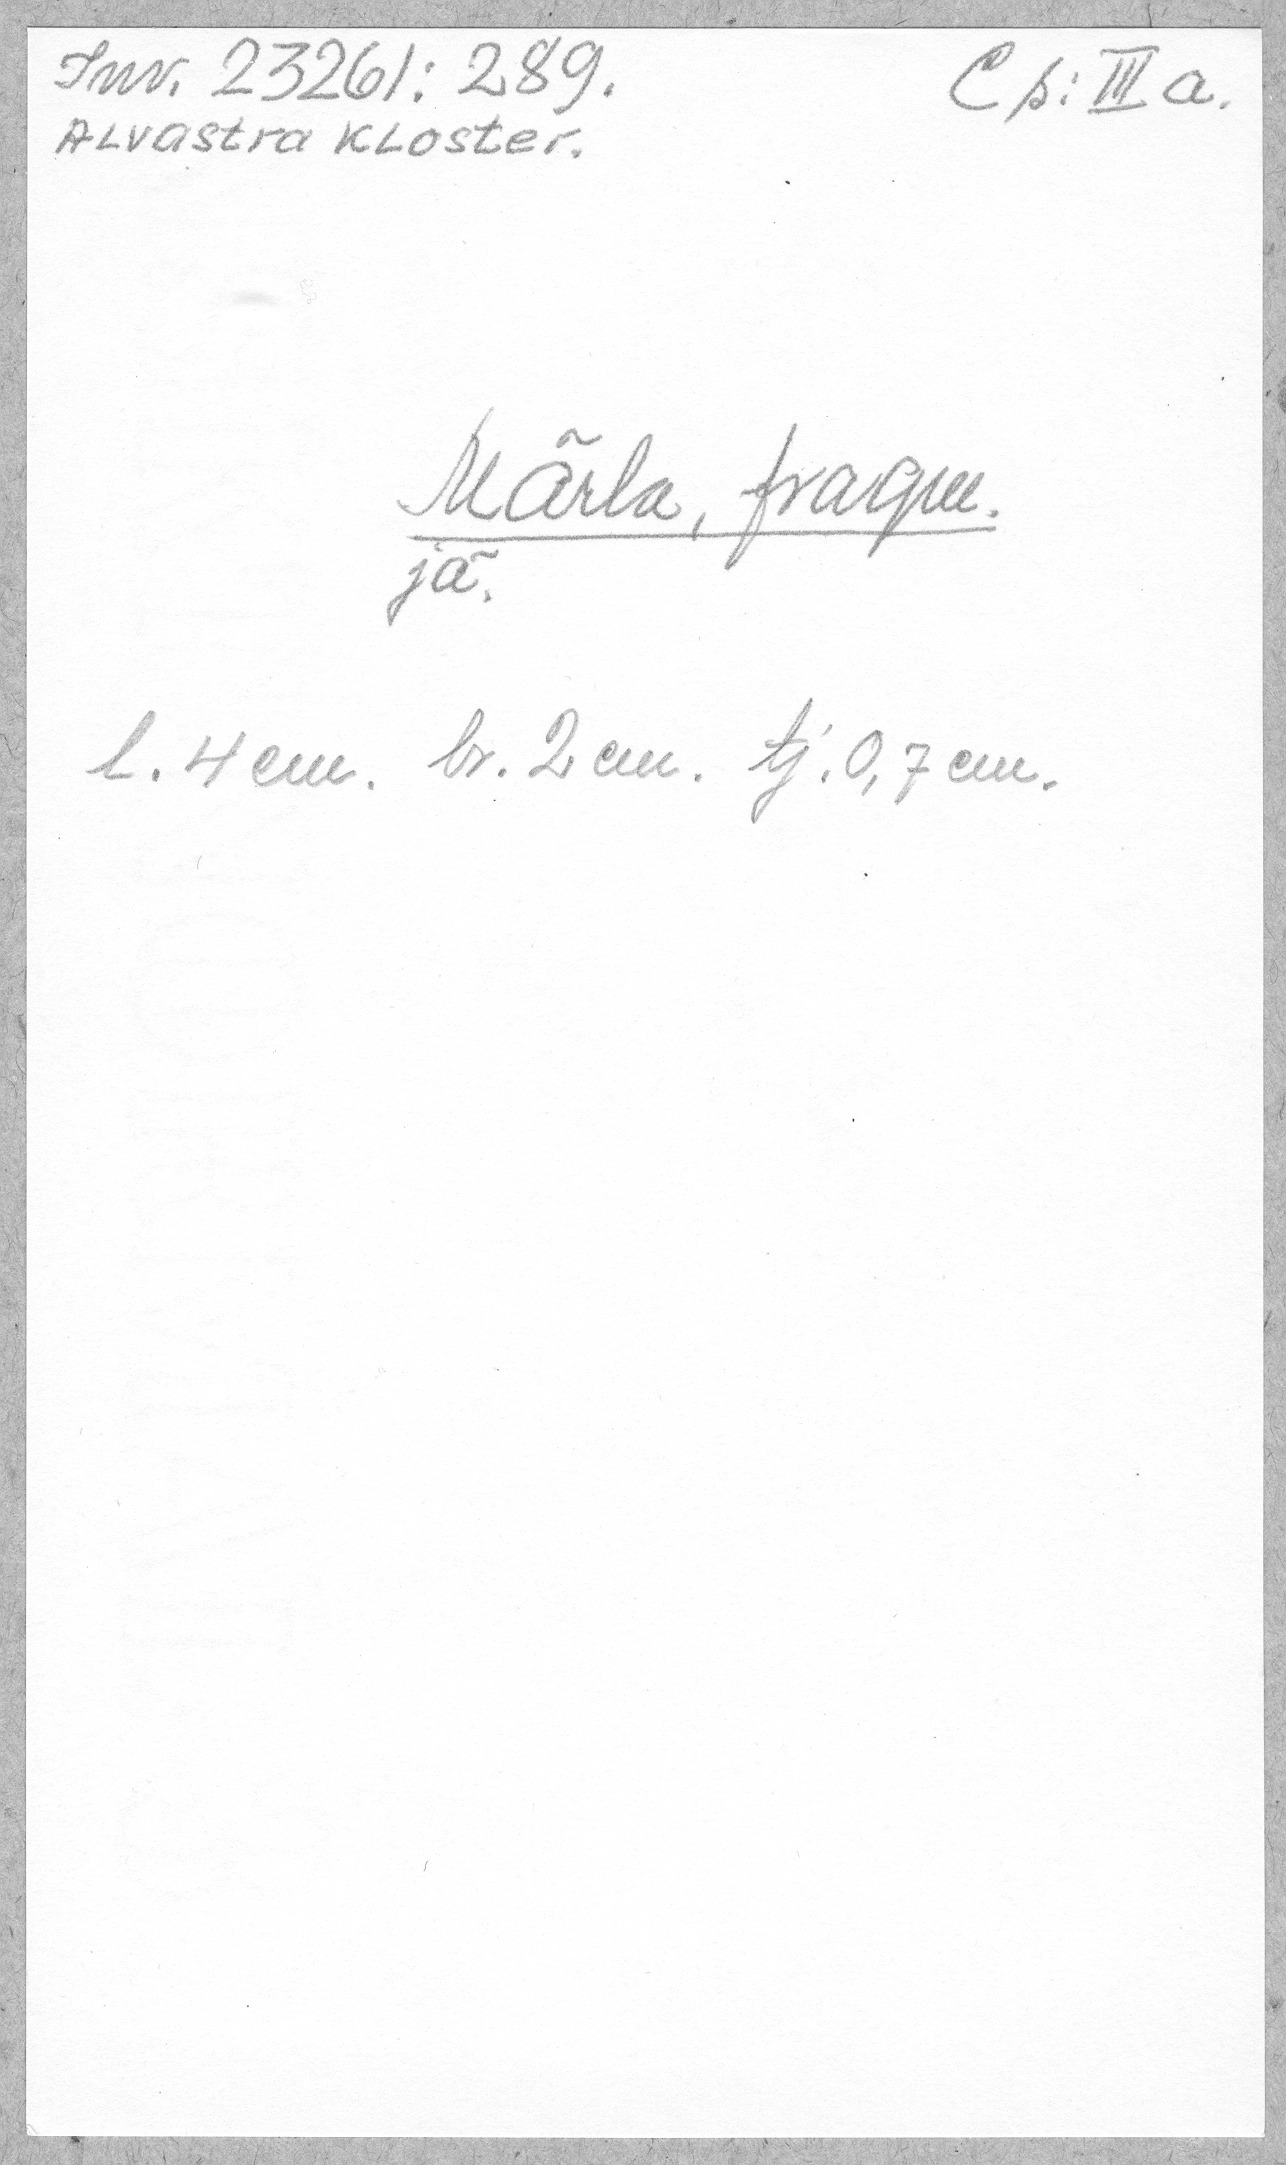 Inv. 23261: 289. C p: III a.
Alvastra Kloster.
Märla, fragm.
jä.
l. 4 cm. br. 2 cm. tj. 0,7 cm.